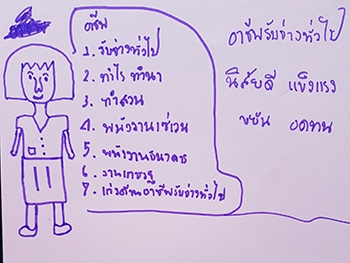 อาชีพ
1. รับจ้างทั่วไป
2. ทำไร่ ทำนา
3. ทำสวน
4. พนักงานเซเว่น
5. พนักงานธนาคาร
6. งานเกษตร
7. เก่งด้านอาชีพรับจ้างทั่วไป
อาชีพรับจ้างทั่วไป
นิสัยดี แข็งแรง
ขยัน อดทน